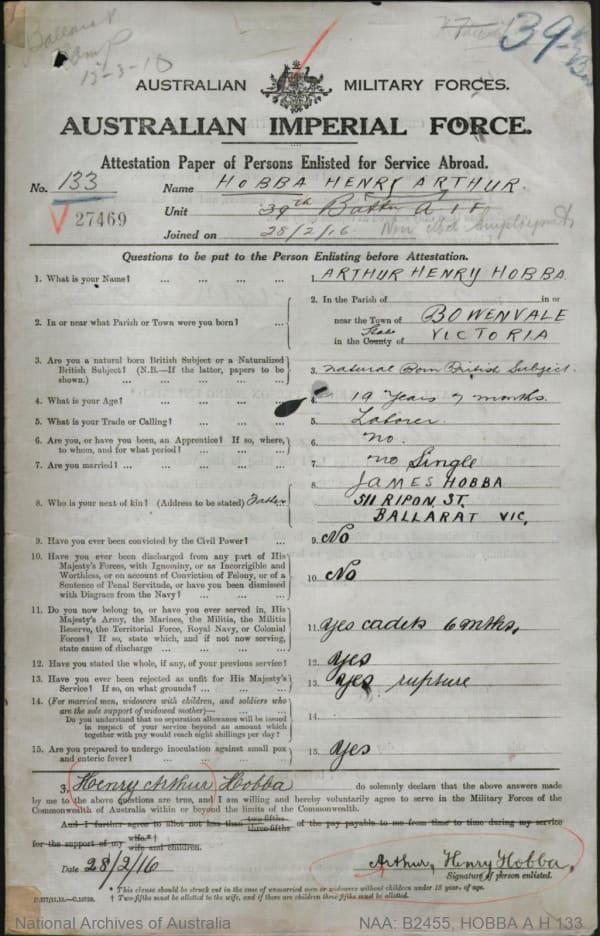 Ballarat
Camp
13-3-16
39th
AUSTRALIAN MILITARY FORCES.
AUSTRALIAN IMPERIAL FORCE.
Attestation Paper of Persons Enlisted for Service Abroad.
No. 133 Name HOBBA HENRY ARTHUR.
27469 Unit 39th Battn A
Joined on 28/2/16
Questions to be put to the Person Enlisting before Attestation.
1. What is your Name? ... ... ... ... 1. ARTHUR HENRY HOBBA
2. In or near what Parish or Town were you born? ... 2. In the Parish of in or
near the Town of BOWENVALE
State
in the County of VICTORIA
3. Are you a natural born British Subject or a Naturalized
British Subject? (N.B.—If the latter, papers to be
shown.) ... ... ... ... 3. Natural Born British Subject.
4. What is your Age? ... ... ... ... 4. 19 years 7 months.
5. What is your Trade or Calling? ... ... ... 5. Laborer.
6. Are you, or have you been, an Apprentice? If so, where,
to whom, and for what period? ... ... ... 6. no.
7. Are you married? ... ... ... ... 7. no Single
8. Who is your next of kin? (Address to be stated) Father 8. JAMES HOBBA
511 RIPON ST.
BALLARAT VIC,
9. Have you ever been convicted by the Civil Power? ... 9. No
10. Have you ever been discharged from any part of His
Majesty's Forces, with Ignominy, or as Incorrigible and
Worthless, or on account of Conviction of Felony, or of a
Sentence of Penal Servitude, or have you been dismissed
with Disgrace from the Navy? ... ... ... 10. No
11. Do you now belong to, or have you ever served in, His
Majesty's Army, the Marines, the Militia, the Militia
Reserve, the Territorial Force, Royal Navy, or Colonial
Forces? If so, state which, and if not now serving,
state cause of discharge ... ... ... 11. Yes cadets 6 mths,
12. Have you stated the whole, if any, of your previous service? 12. Yes
13. Have you ever been rejected as unfit for His Majesty's
Service? If so, on what grounds? ... ... ... 13. Yes rupture
14. (For married men, widowers with children, and soldiers who
are the sole support of widowed mother)—
Do you understand that no separation allowance will be issued
in respect of your service beyond an amount which
together with pay would reach eight shillings per day? 14.
15. Are you prepared to undergo inoculation against small pox
and enteric fever? ... ... ... ... 15. Yes
3. Henry Arthur Hobba do solemnly declare that the above answers made
by me to the above questions are true, and I am willing and hereby voluntarily agree to serve in the Military Forces of the
Commonwealth of Australia within or beyond the limits of the Commonwealth.
And I further agree to allot not less than two-fifths three-fifths of the pay payable to me from time to time during my service
for the support of my wife.* † wife and children.
Date 28/2/16 Arthur, Henry Hobba,
Signature of person enlisted.
* This clause should be struck out in the case of unmarried men or widowers without children under 18 years of age.
† Two-fifths must be allotted to the wife, and if there are children three-fifths must be allotted.
National Archives of Australia NAA: B2455, HOBBA A H 133